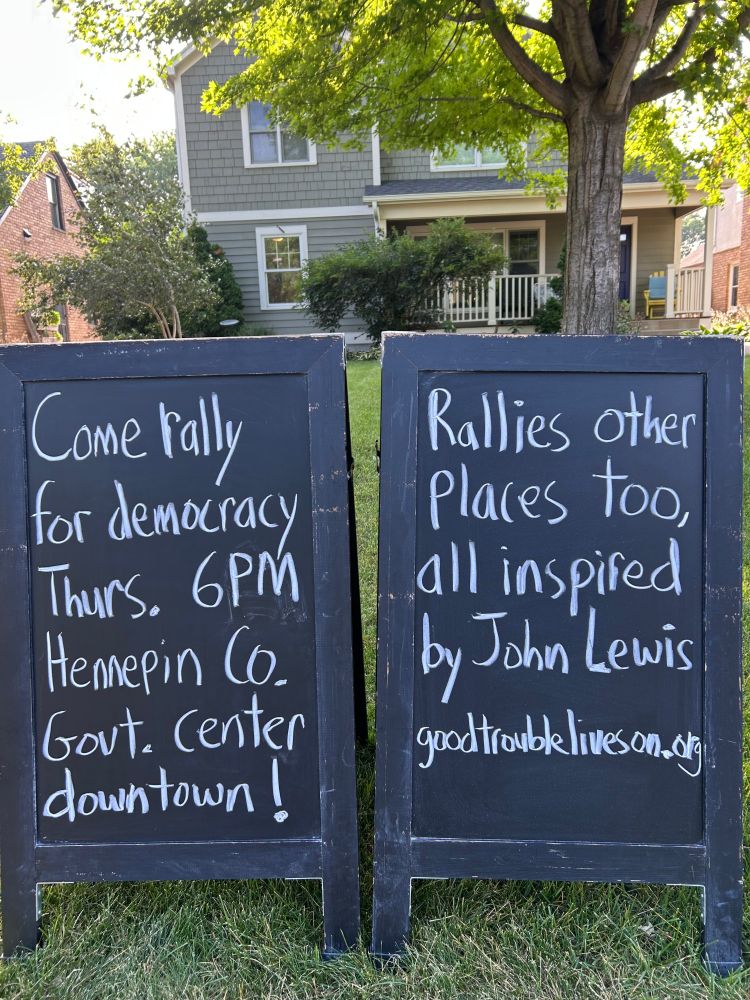 Come rally
for democracy
Thurs. 6PM
Hennepin Co.
Govt. center
downtown!
Rallies other
places too,
all inspired
by John Lewis
goodtroubleliveson.org